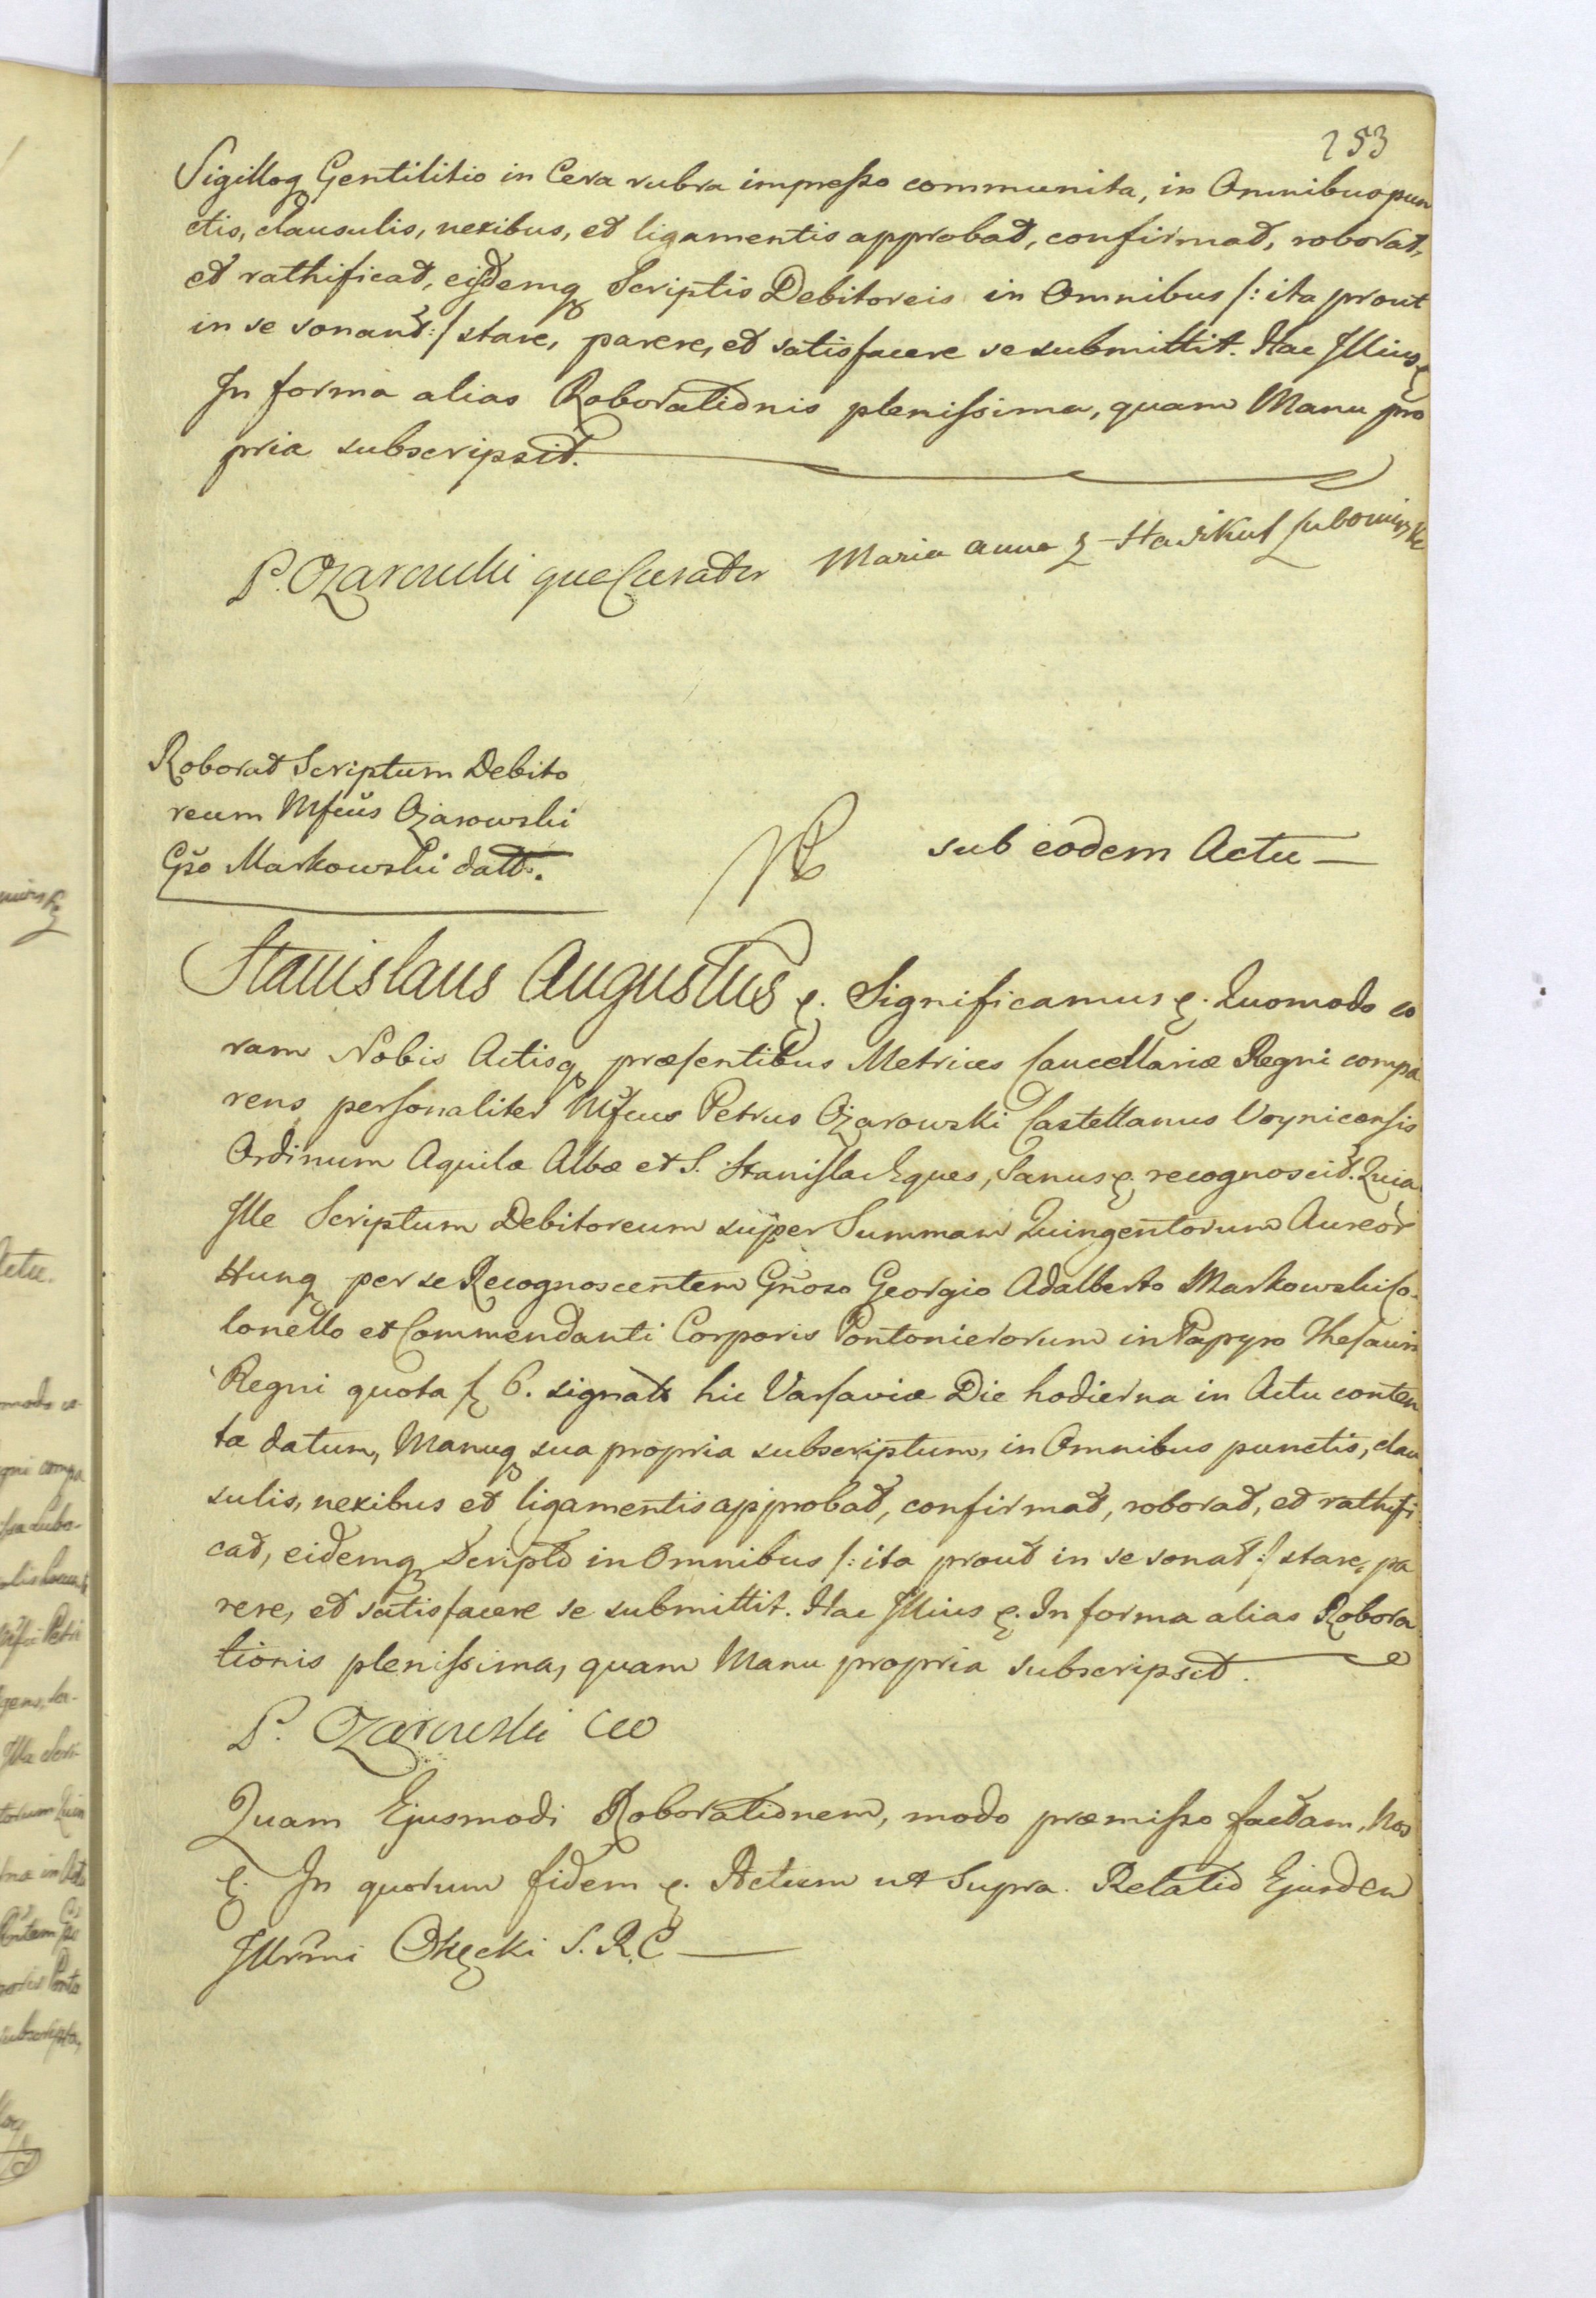 253
Sigilloq Gentilitio in Cera rubra impresso communita, in Omnibus pun
ctis, clausulis, nexibus, et ligamentis approbat, confirmat, roborat,
et rathificat, eisdemq Scriptis Debitoreis in Omnibus /: ita prout
in se sonant :/ stare, parere, et satisfacere se submittit. Hac Illius
In forma alias Roborationis plenissima, quam Manu pro
pria subscripsit.
P. Ożarowski qua Curator Maria Anna z Hawkul Lubomirska
Roborat Scriptum Debito
reum Mfcus Ożarowski
Gso Markowski datt.
sub eodem Actu —
Stanislaus Augustus &. Significamus &. Quomodo co
ram Nobis Actisq præsentibus Metrices Cancellariæ Regni compa
rens personaliter Mfcus Petrus Ożarowski Castellanus Voynicensis
Ordinum Aquilæ Albæ et S. Stanislai Eques, Sanus &. recognoscit. Quia
Ille Scriptum Debitoreum super Summam Quingentorum Aureor
Hung per se Recognoscentem Gnoso Georgio Adalberto Markowski Co
lonello et Commendanti Corporis Pontonierorum in Papyro Thesauri
Regni quota f 6. signato hic Varsaviæ Die hodierna in Actu conten
ta datum, Manuq sua propria subscriptum, in Omnibus punctis, clau
sulis, nexibus et ligamentis approbat, confirmat, roborat, et rathifi
cat, eidemq Scripto in Omnibus /: ita prout in se sonat :/ stare, pa
rere, et satisfacere se submittit. Hac Illius &. In forma alias Robora
tionis plenissima, quam Manu propria subscripsit.
P. Ożarowski CW
Quam Ejusmodi Roborationem, modo præmisso factam, Nos
&. In quorum fidem &. Actum ut Supra. Relatio Ejusdem
Illrmi Okęcki S. R. C —